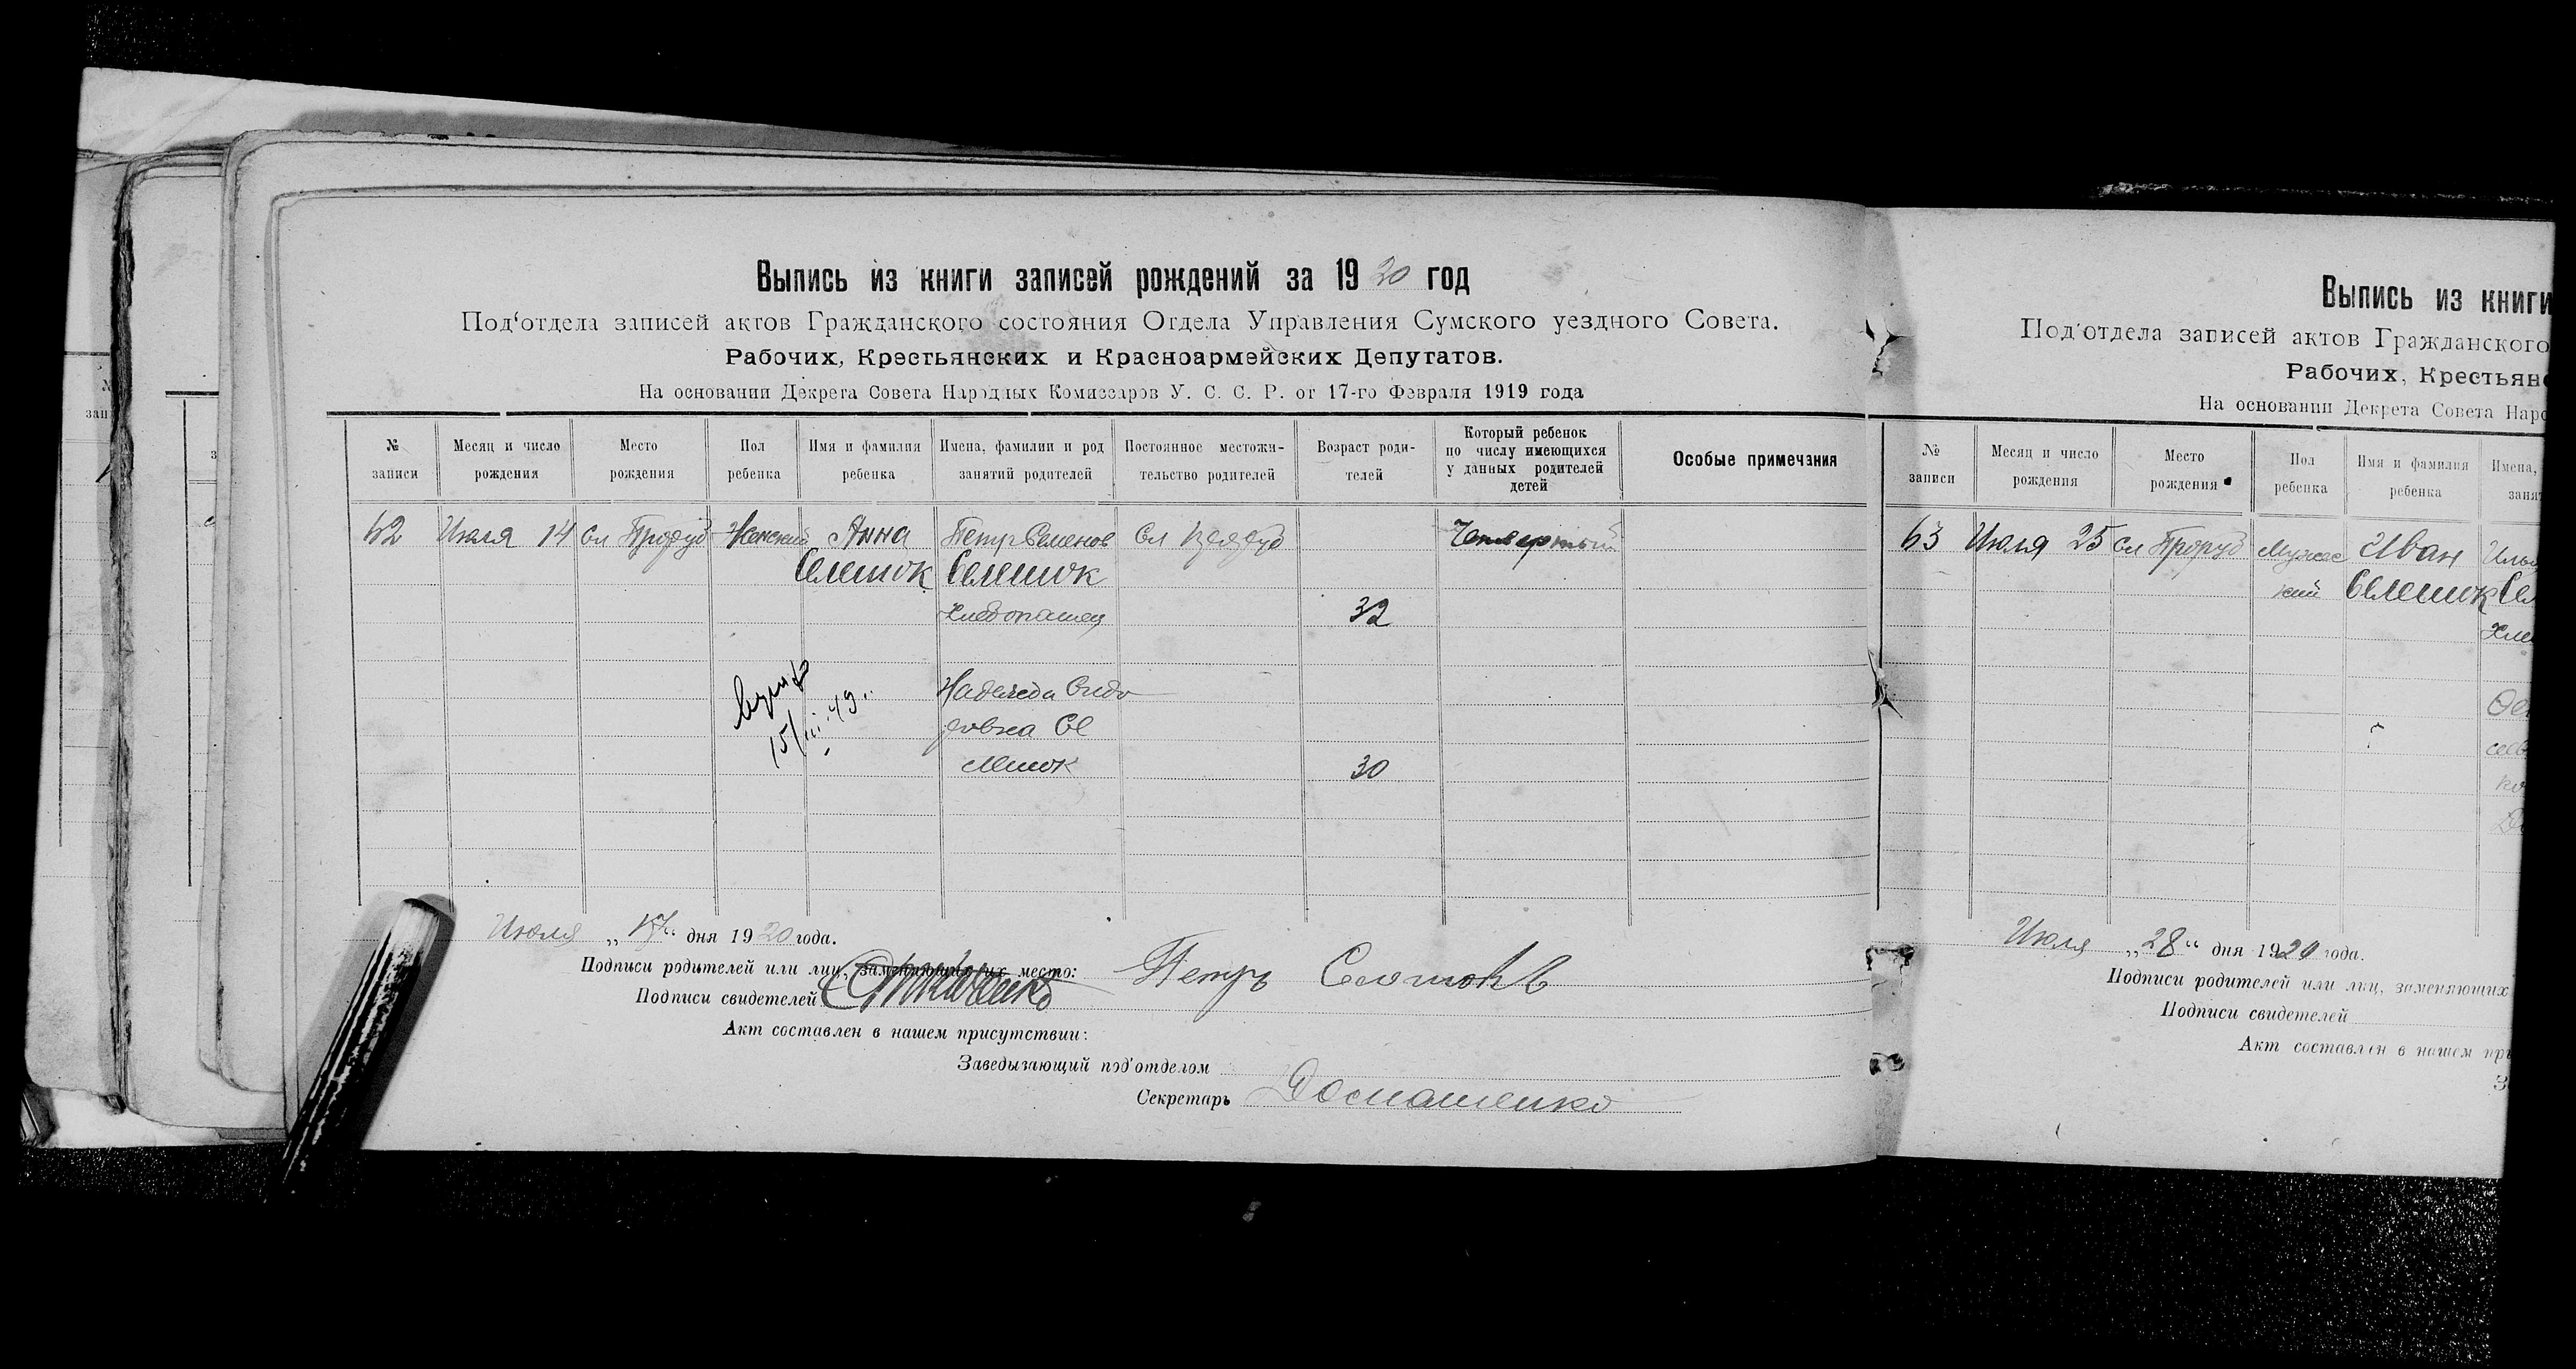 Выпись из книги записей рождений за 1920 год
Под'отдела записей актов Гражданского состояния Отдела Управления Сумского уездного Совета.
Рабочих, Крестьянских и Красноармейских Депутатов.
На основании Декрета Совета Народных Комиссаров У. С. С. Р. от 17-го Февраля 1919 года
№ записи
Месяц и число рождения
Место рождения
Пол ребенка
Имя и фамилия ребенка
Имена, фамилии и род занятий родителей
Постоянное местожительство родителей
Возраст родителей
Который ребенок по числу имеющихся у данных родителей детей
Особые примечания
62 Июля 14 сл Проруб Женский Анна Петр Семенов сл Четвертый
Селешок Селешок
хлебопашец 32
Надежда Сидо
ровна Се
лешок 30
15/III 49
Июля „17“ дня 1920 года.
Подписи родителей или лиц, заменяющих их место: Петръ
Подписи свидетелей
Акт составлен в нашем присутствии:
Заведывающий под'отделом
Секретарь Домашенко
Выпись из книги
Под'отдела записей актов Гражданского
Рабочих, Крестьян
На основании Декрета Совета Наро
№ записи
Месяц и число рождения
Место рождения
Пол ребенка
Имя и фамилия ребенка
Имена,
занят
63 Июля 25 сл Проруб Мужес Иван Иль
кий Селешок Сел
Хле
Июля „28“ дня 1920 года.
Подписи родителей или лиц, заменяющих
Подписи свидетелей
Акт составлен в нашем при
З